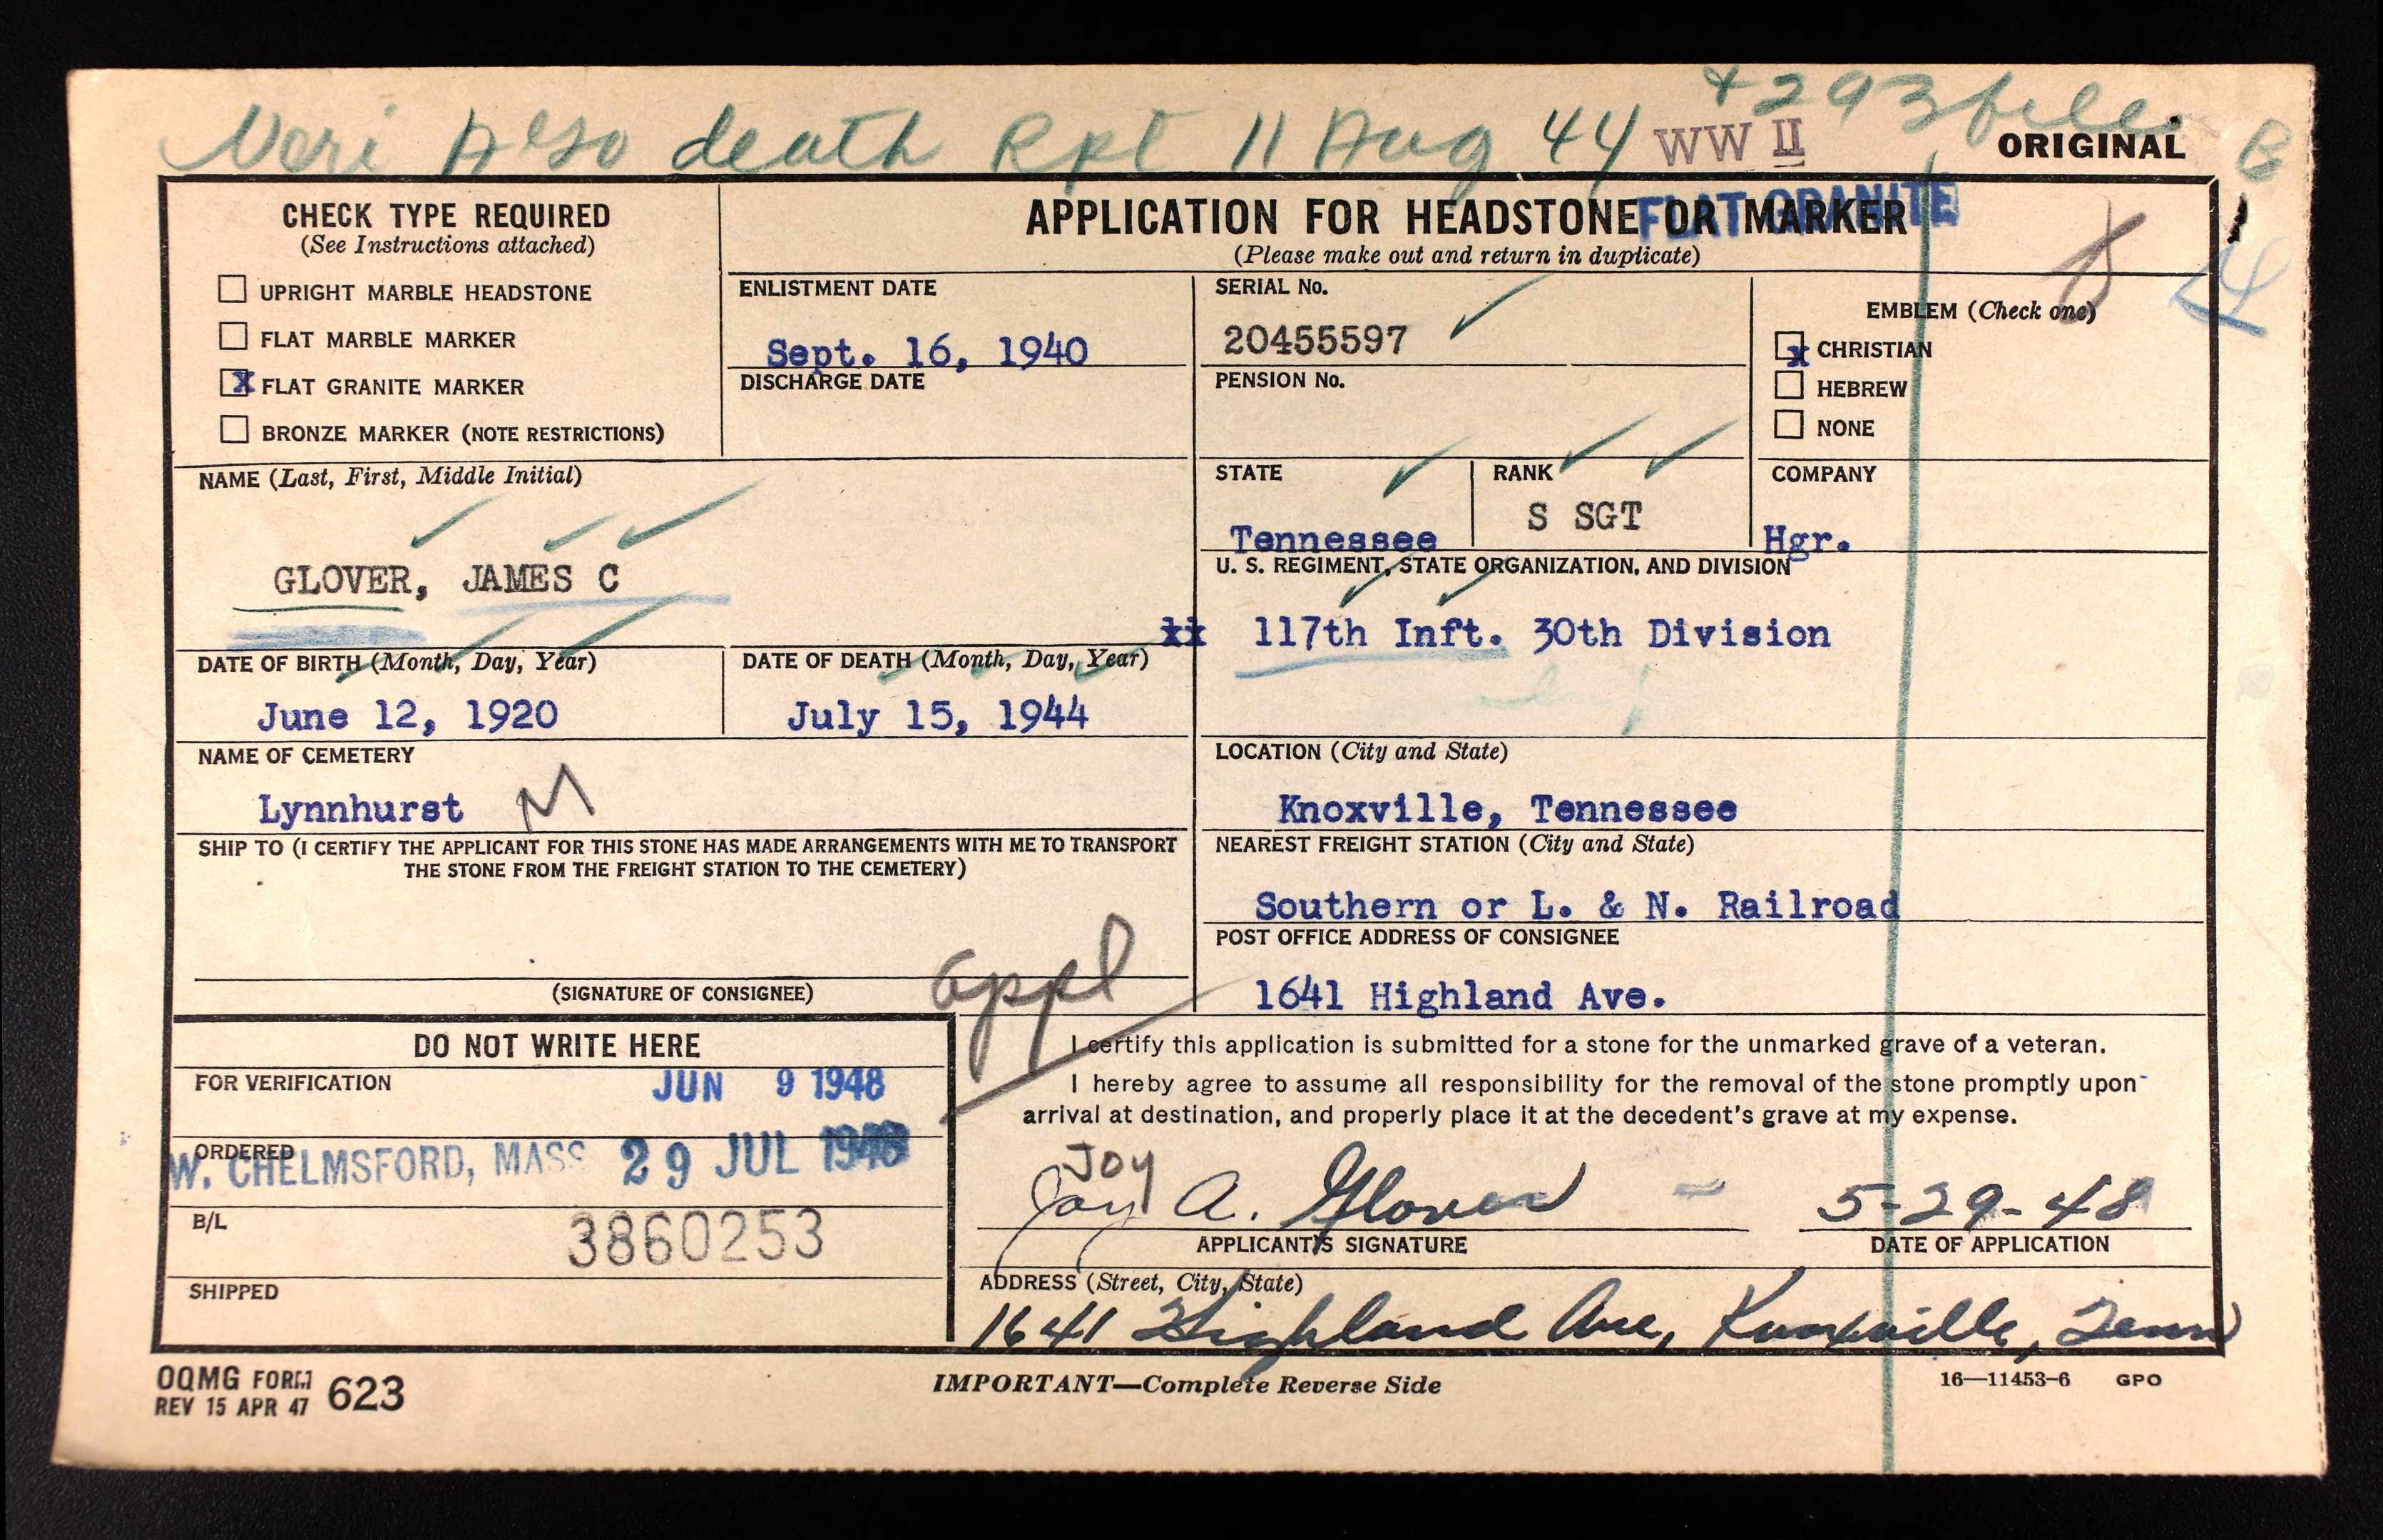 Veri Also death Rpt 11 Aug 44 + 293 file
WW II
ORIGINAL
B
CHECK TYPE REQUIRED
(See Instructions attached)
UPRIGHT MARBLE HEADSTONE
FLAT MARBLE MARKER
X FLAT GRANITE MARKER
BRONZE MARKER (NOTE RESTRICTIONS)
APPLICATION FOR HEADSTONE OR MARKER
FLAT GRANITE
(Please make out and return in duplicate)
ENLISTMENT DATE
Sept. 16, 1940
DISCHARGE DATE
SERIAL No.
20455597
PENSION No.
EMBLEM (Check one)
x CHRISTIAN
HEBREW
NONE
NAME (Last, First, Middle Initial)
GLOVER, JAMES C
STATE
Tennessee
RANK
S SGT
COMPANY
Hgr.
U. S. REGIMENT, STATE ORGANIZATION, AND DIVISION
xx 117th Inft. 30th Division
DATE OF BIRTH (Month, Day, Year)
June 12, 1920
DATE OF DEATH (Month, Day, Year)
July 15, 1944
NAME OF CEMETERY
Lynnhurst M
LOCATION (City and State)
Knoxville, Tennessee
SHIP TO (I CERTIFY THE APPLICANT FOR THIS STONE HAS MADE ARRANGEMENTS WITH ME TO TRANSPORT
THE STONE FROM THE FREIGHT STATION TO THE CEMETERY)
(SIGNATURE OF CONSIGNEE)
appl
NEAREST FREIGHT STATION (City and State)
Southern or L. & N. Railroad
POST OFFICE ADDRESS OF CONSIGNEE
1641 Highland Ave.
DO NOT WRITE HERE
FOR VERIFICATION
JUN 9 1948
ORDERED
W. CHELMSFORD, MASS 29 JUL 1948
B/L
3860253
SHIPPED
I certify this application is submitted for a stone for the unmarked grave of a veteran.
I hereby agree to assume all responsibility for the removal of the stone promptly upon
arrival at destination, and properly place it at the decedent's grave at my expense.
JOY
Joy A. Glover
5-29-48
APPLICANT'S SIGNATURE
DATE OF APPLICATION
ADDRESS (Street, City, State)
1641 Highland Ave, Knoxville, Tenn
OQMG FORM 623
REV 15 APR 47
IMPORTANT—Complete Reverse Side
16—11453-6 GPO